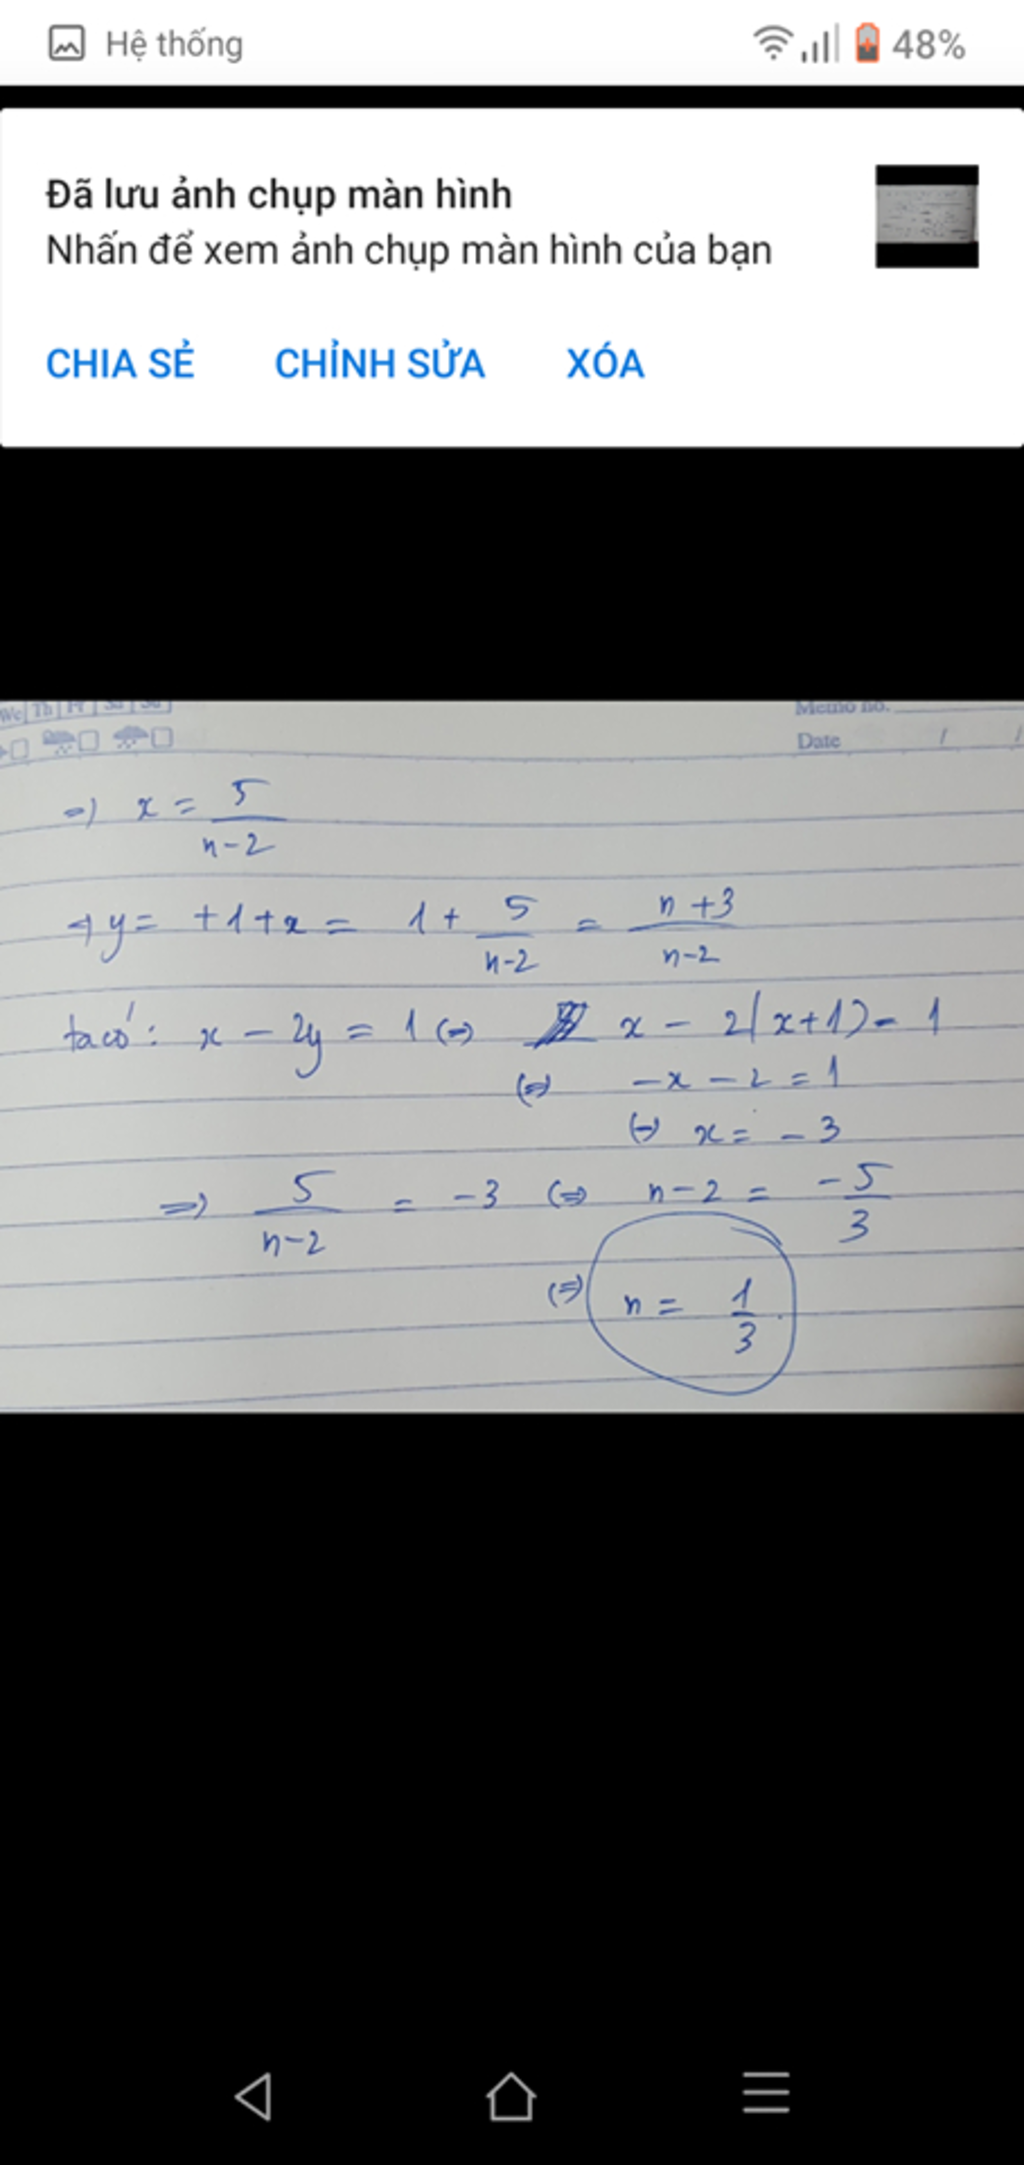 Hệ thống 48%
Đã lưu ảnh chụp màn hình
Nhấn để xem ảnh chụp màn hình của bạn
CHIA SẺ CHỈNH SỬA XÓA
We Th Fr Sa Su Memo no.
Date / /
=) x = 5/(n-2)
y = +1+x = 1 + 5/(n-2) = (n+3)/(n-2)
ta có: x - 2y = 1 (=) x - 2(x+1) = 1
(=) -x - 2 = 1
(=) x = -3
=) 5/(n-2) = -3 (=) n-2 = -5/3
(=) n = 1/3